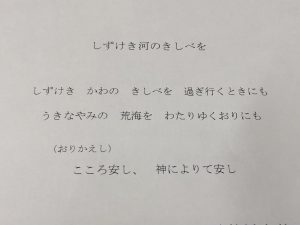 しずけき河のきしべを
しずけき　かわの　きしべを　過ぎ行くときにも
うきなやみの　荒海を　わたりゆくおりにも
（おりかえし）
こころ安し、　神によりて安し